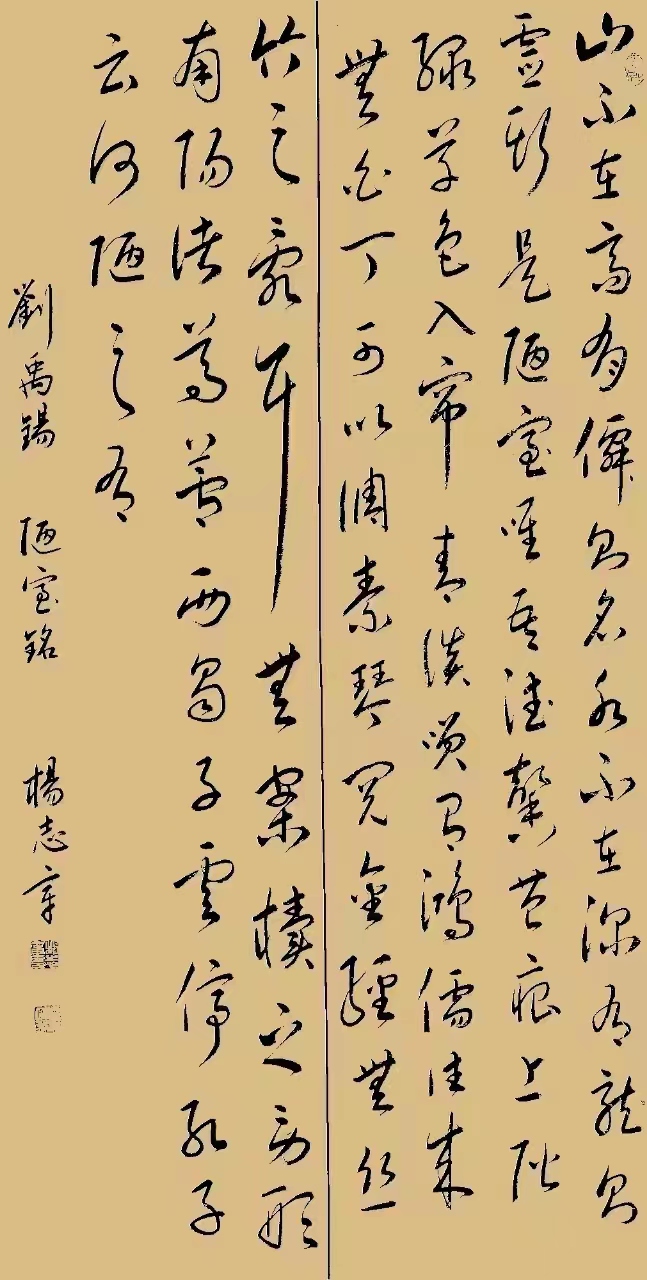 山不在高有僊則名水不在深有龍則
靈斯是陋室唯吾德馨苔痕上階
綠草色入帘青談笑有鴻儒往來
無白丁可以調素琴閱金經無絲
竹之亂耳無案牘之勞形
南陽諸葛蘆西蜀子雲停孔子
云何陋之有
劉禹錫 陋室銘 楊志章